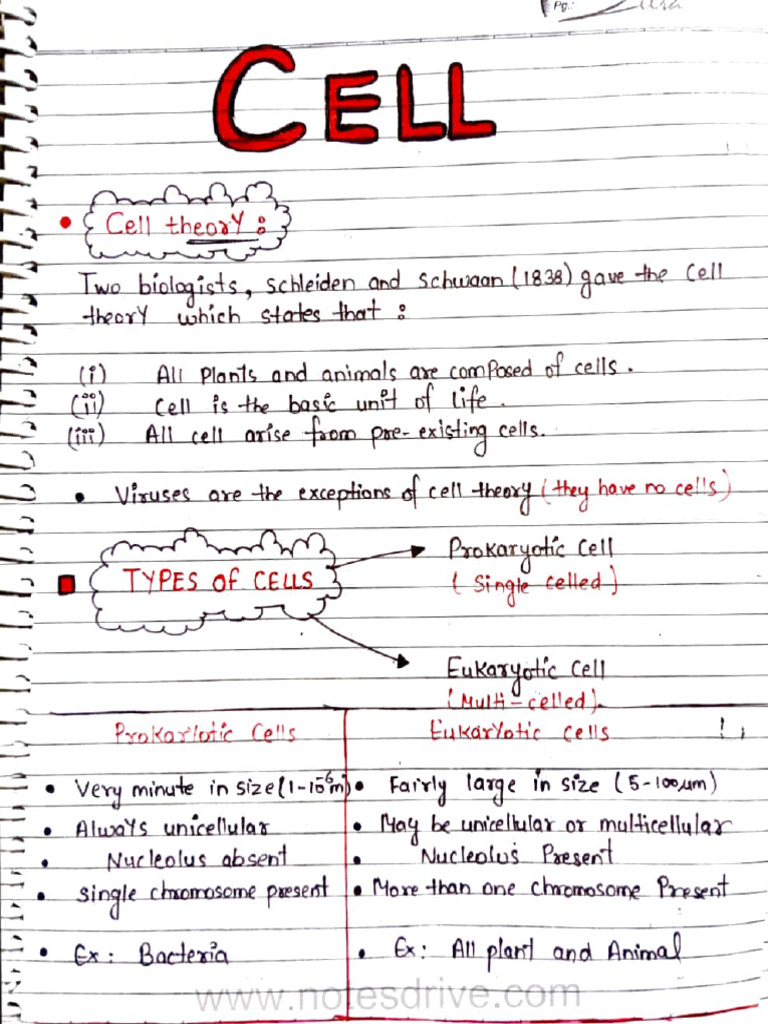 Pg.:
CELL
• Cell theory :
Two biologists, Schleiden and Schwaan (1838) gave the Cell
theory which states that :
(i) All Plants and animals are composed of cells.
(ii) Cell is the basic unit of life.
(iii) All cell arise from pre-existing cells.
• Viruses are the exceptions of cell theory (they have no cells)
TYPES OF CELLS
Prokaryotic Cell
(Single celled)
Eukaryotic Cell
(Multi-celled).
Prokariotic Cells
• Very minute in size (1-10⁻⁶m)
• Always unicellular
• Nucleolus absent
• single chromosome present
• Ex: Bacteria
Eukaryotic cells
• Fairly large in size (5-100μm)
• May be unicellular or multicellular
• Nucleolus Present
• More than one chromosome Present
• Ex: All plant and Animal
www.notesdrive.com